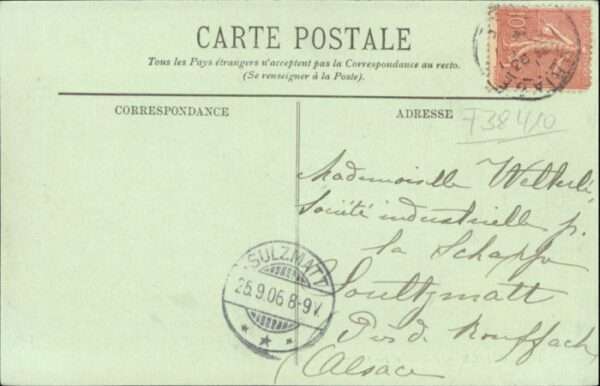 CARTE POSTALE
Tous les Pays étrangers n'acceptent pas la Correspondance au recto.
(Se renseigner à la Poste).
CORRESPONDANCE
ADRESSE
10
F38410
Mademoiselle Welterlé
Société industrielle p.
la Schappe
Soultzmatt
Près de Rouffach
Alsace
SULZMATT
25.9.06.8-9V.